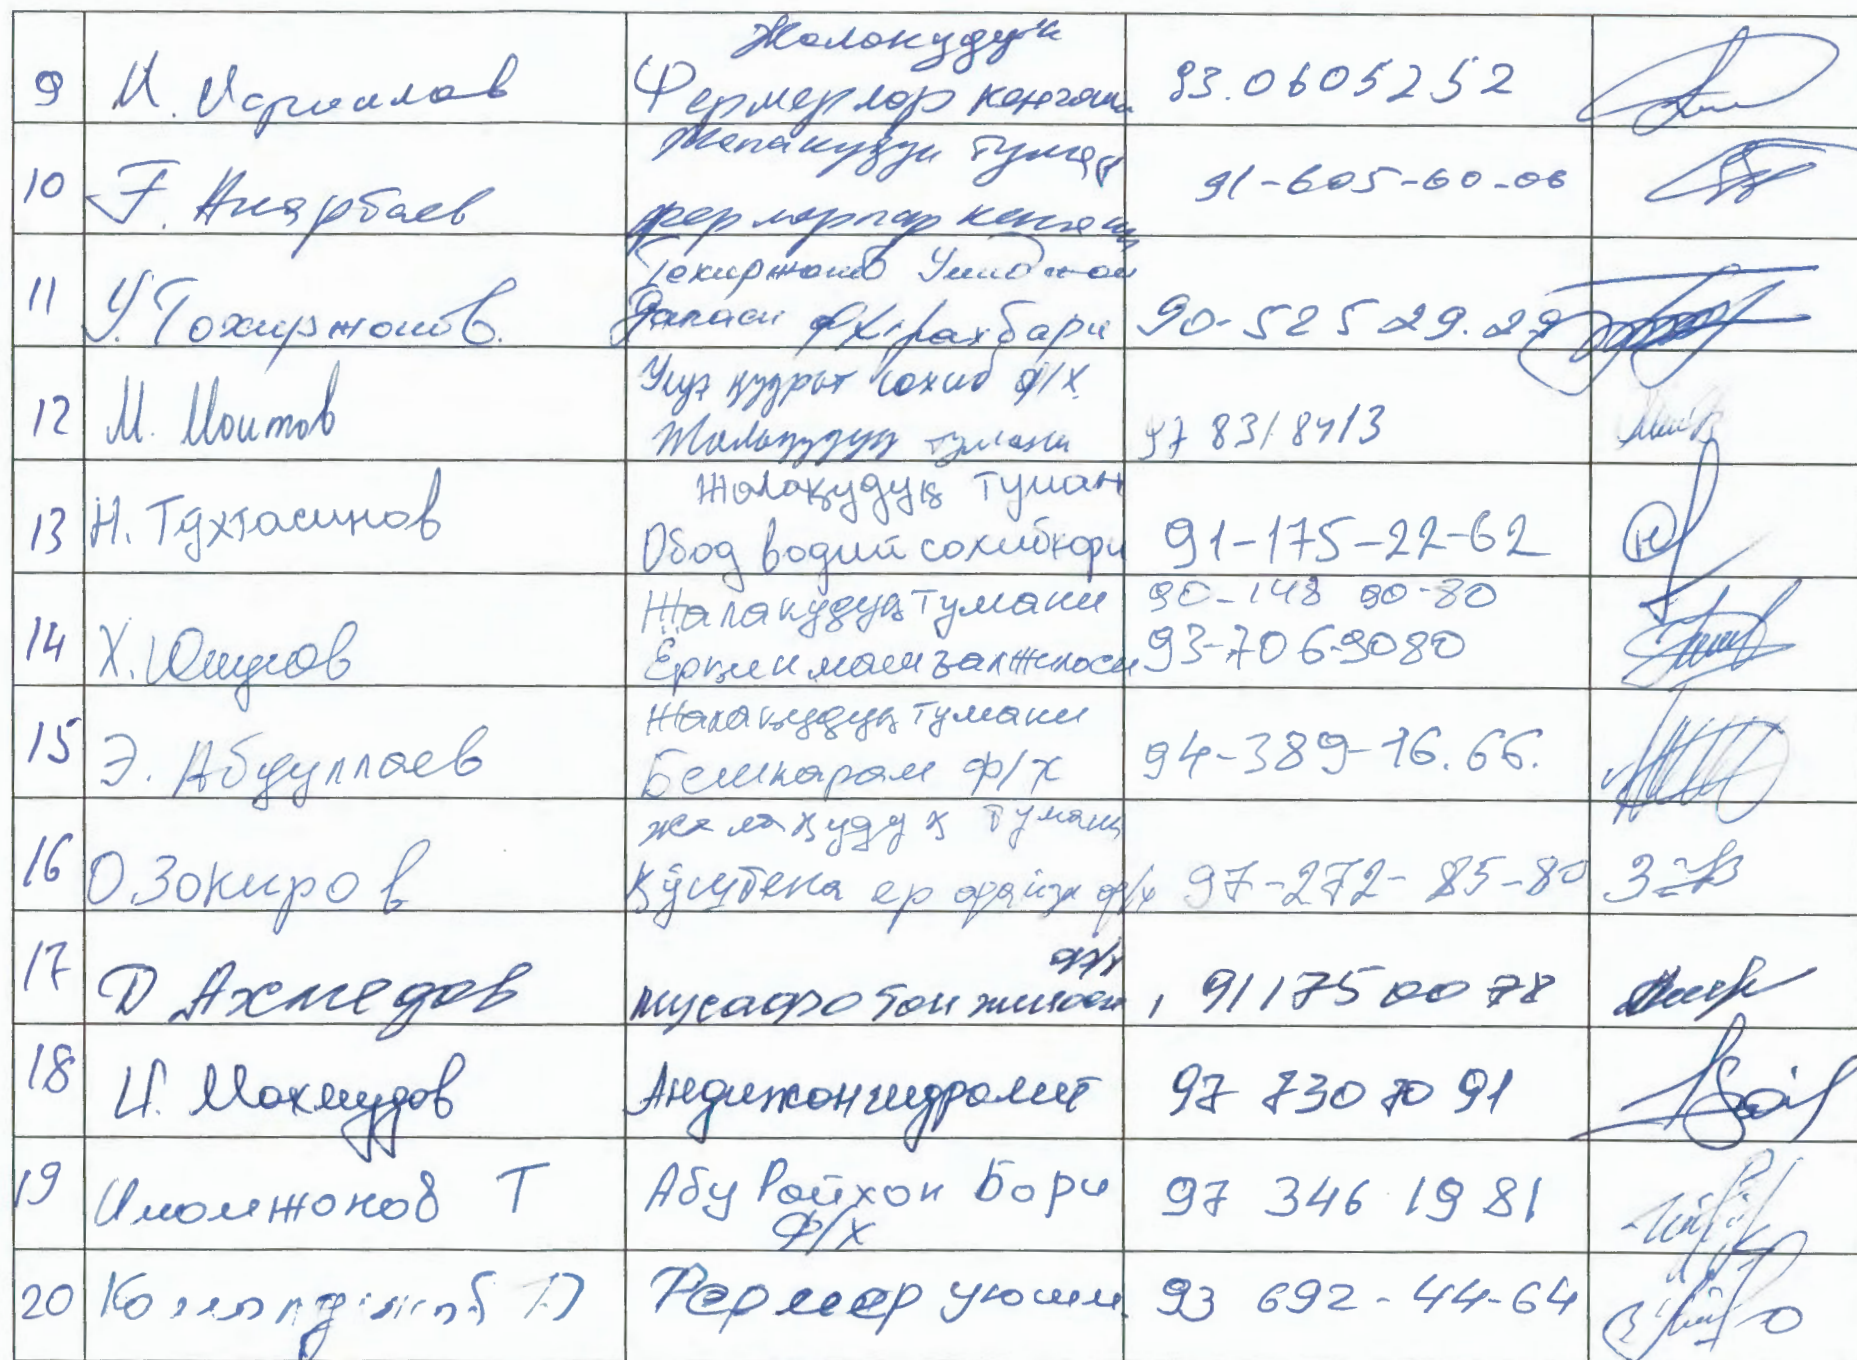 9 И. Исраилов Жолокудук
Фермерлар кенгаши 93.0605252
10 Ғ. Анарбаев Жалакудук туман
фермерлар кенгаши 91-605-60-06
11 У. Тохиржонов. Тохиржонов Умиджон
Даласи ф/х рахбари 90-525 29.29
12 М. Моитов қудрат сохиб ф/х
Жалақудуқ тумани 97 831 8413
13 Н. Тӯхтасинов Жалақудуқ туман
Обод водий сохибкори 91-175-22-62
14 Х. Юнусов Жалакудуқ тумани 90-148 90-80
Ёркин 93-706-9080
15 Э. Абдуллаев Жалақудуқ тумани
Бешкарам ф/х 94-389-16.66.
16 О.Зокиров жалақудуқ тумани
Қўштепа ер файзи ф/х 97-272-85-80
17 Д Ахмедов ф/х
мусаффо 91 175 00 78
18 И. Махмудов Андижонгидромет 97 730 70 91
19 Имомжонов Т Абу Райхон Бори
ф/х 97 346 19 81
20 Фермер уюшм. 93 692-44-64